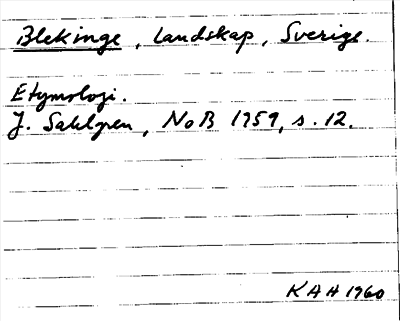 Blekinge, landskap, Sverige.
Etymologi.
J. Sahlgren, NoB 1959, s. 12.
KAH 1960